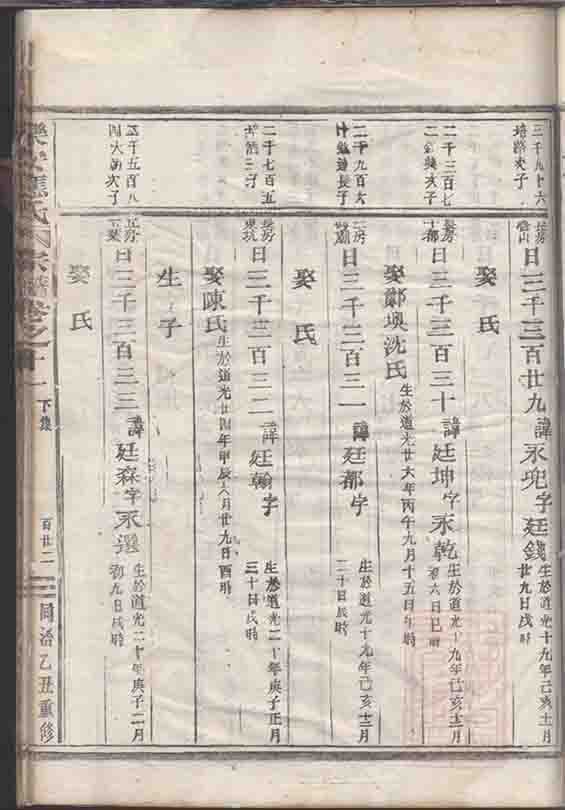 三千九十六
培路次子
長房
日三千三百廿九諱永兜字廷錢生於道光十九年己亥十二月
廿九日戌時
娶氏
二千三百七
次子
長房
十都
日三千三百三十諱廷坤字永乾生於道光十九年己亥十二月
初六日巳時
娶鄭墺沈氏生於道光廿六年丙午九月十五日午時
二千九百六
十 長子
二房
日三千三百三一諱廷都字
生於道光十九年己亥十二月
二十日辰時
娶氏
二千七百五
三子
長房
日三千三百三二諱廷翰字
生於道光二十年庚子正月
三十日戌時
娶陳氏生於道光廿四年甲辰八月廿九日酉時
生子
三千五百八
四大 次子
長房
日三千三百三三諱廷森字永選生於道光二十年庚子二月
初九日戌時
娶氏
氏宗譜卷之十一
下集
百廿二
同治乙丑重修